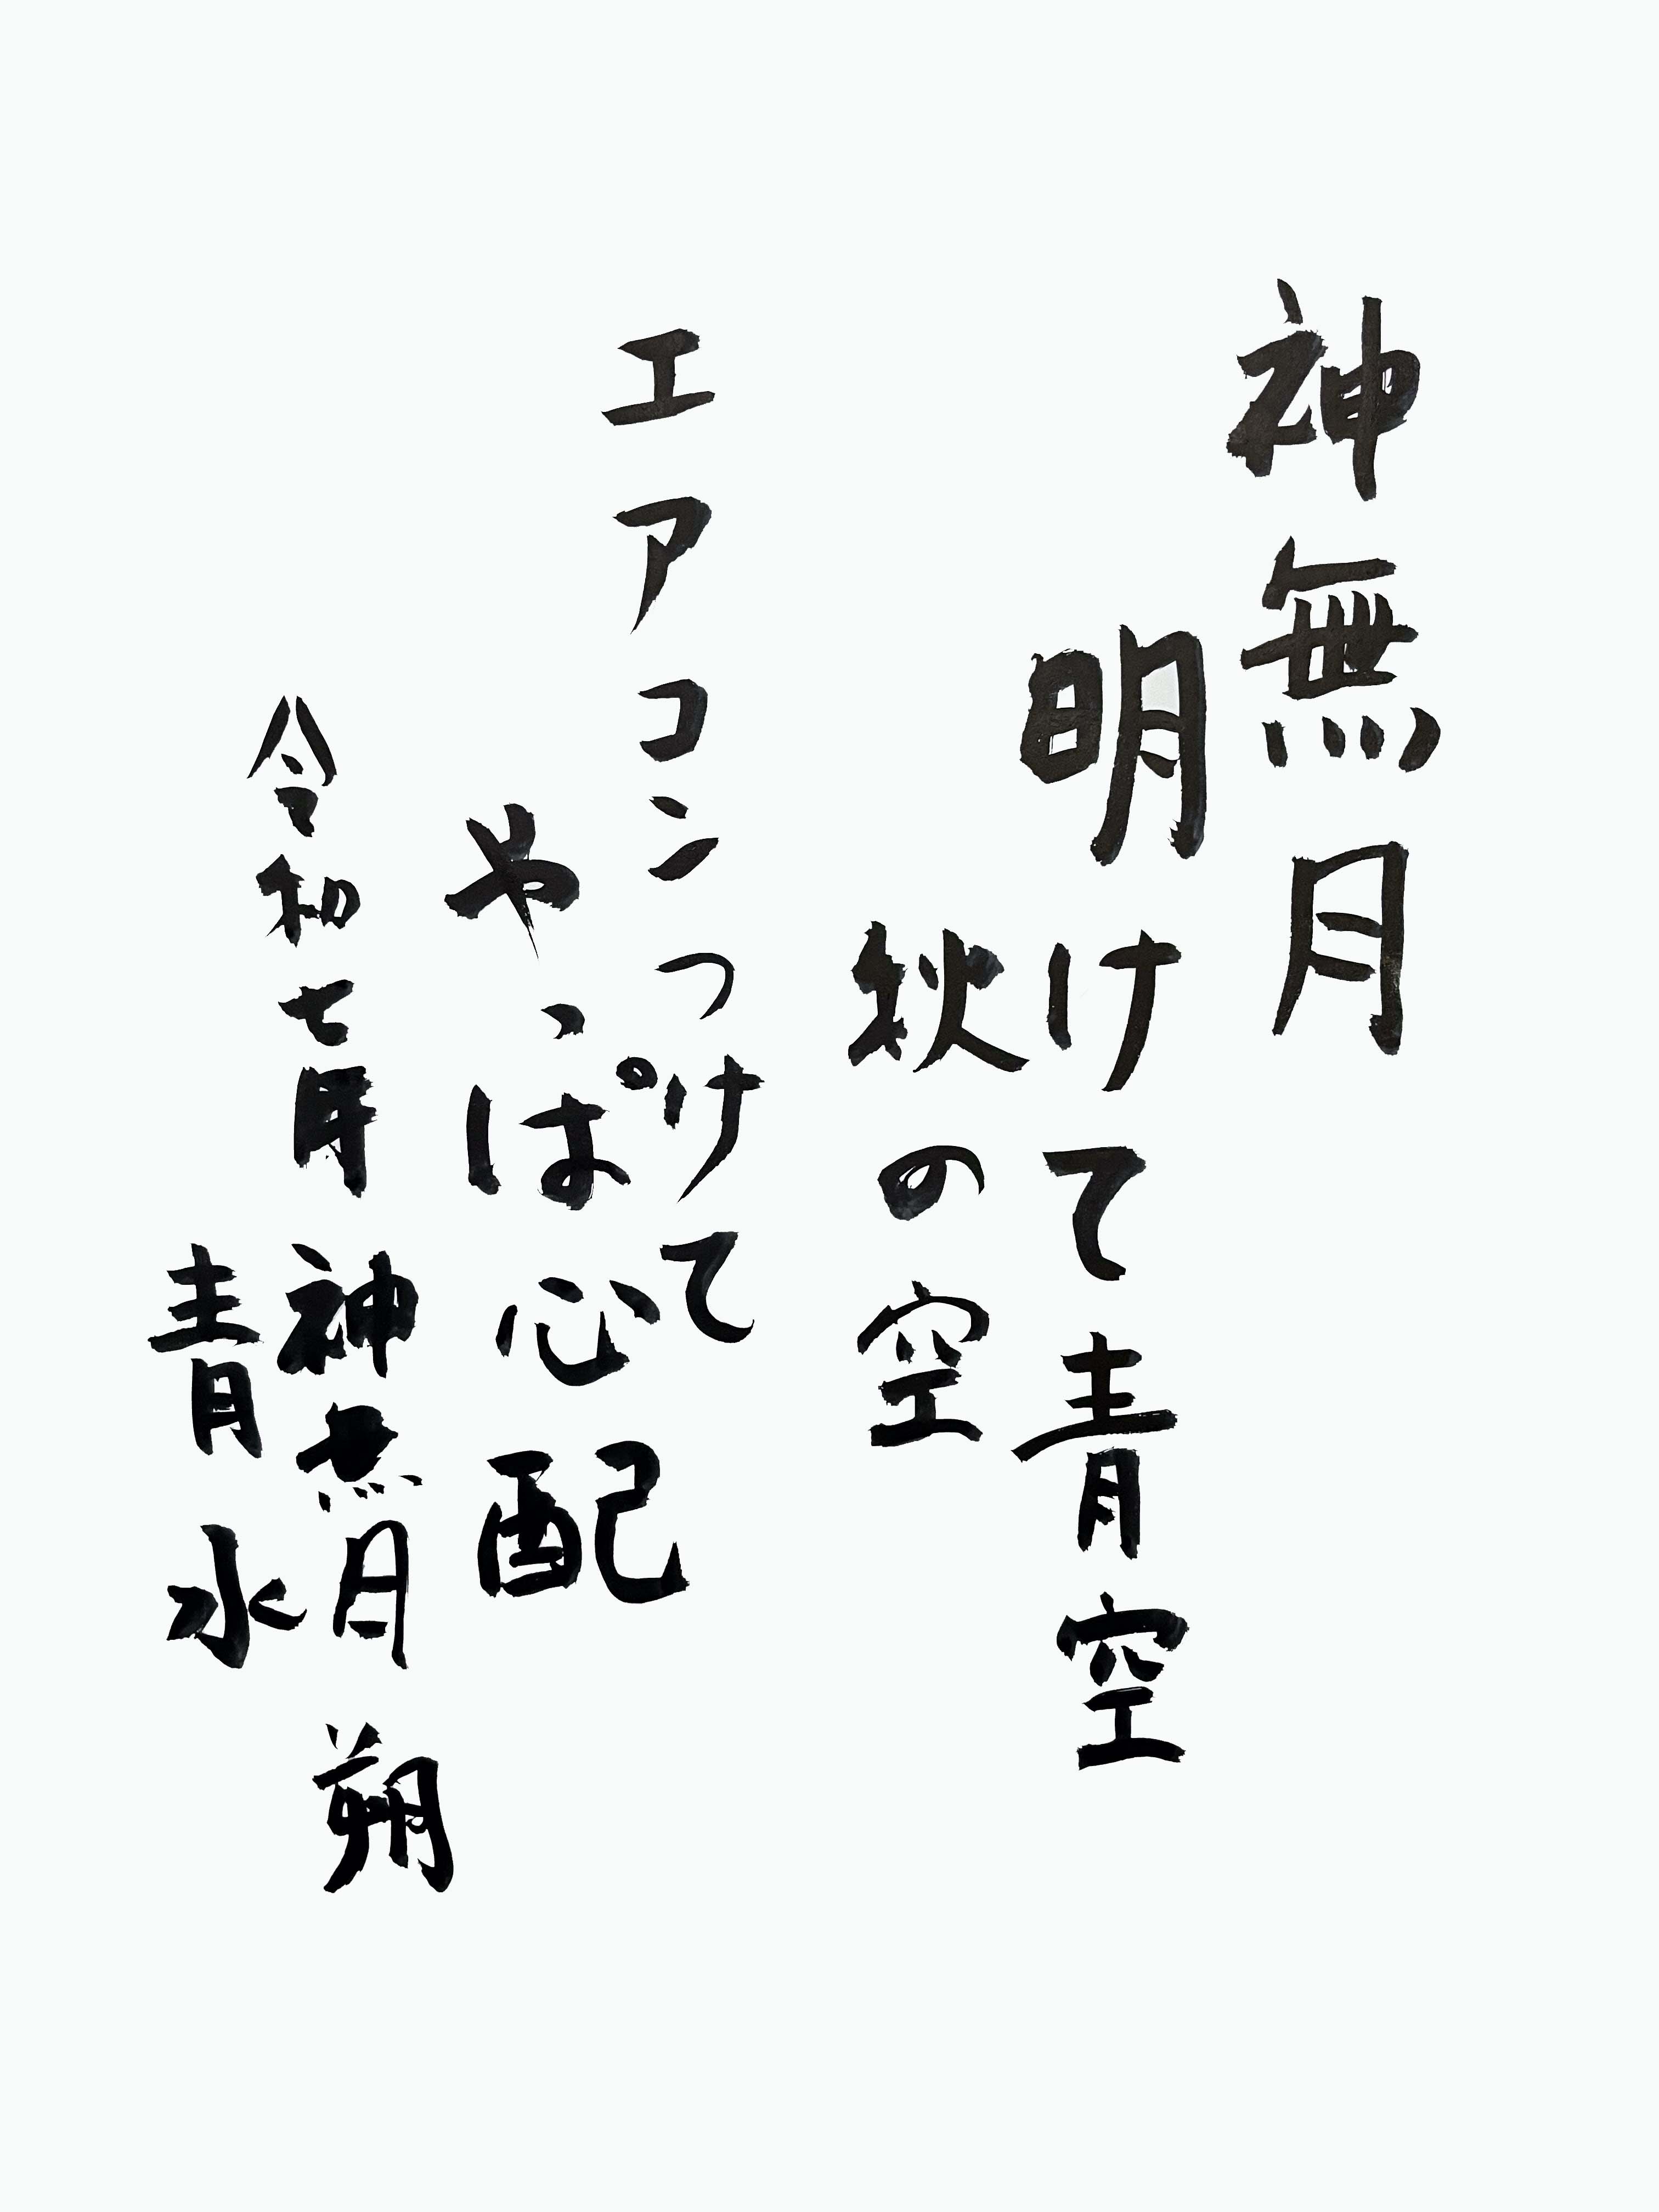 神無月
明けて青空
秋の空
エアコンつけて
やっぱ心配
令和七年
神無月朔
青水